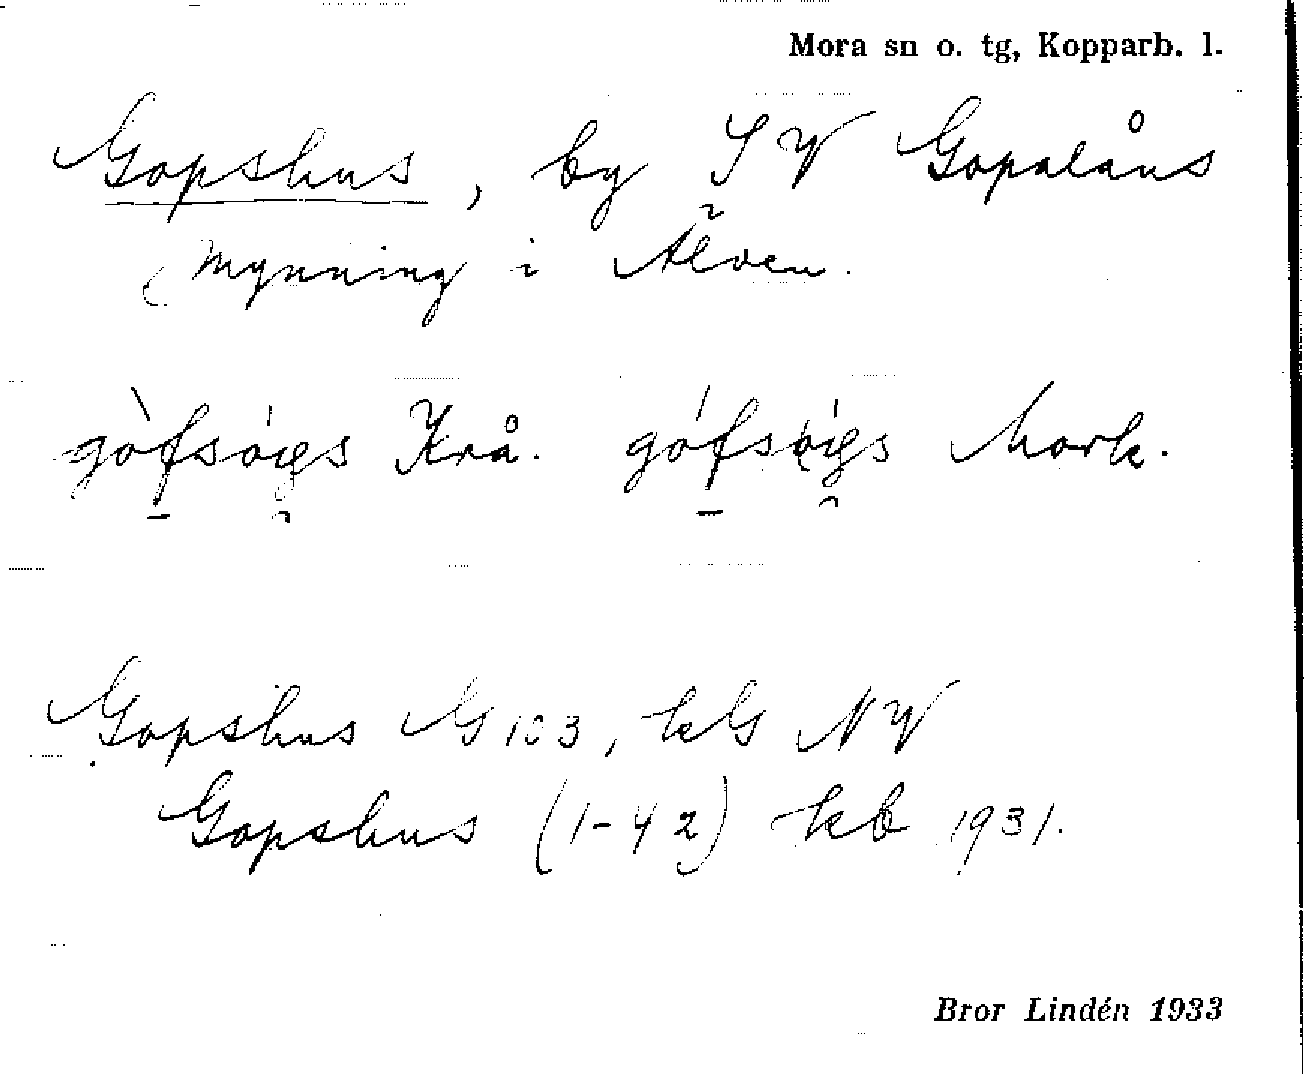 Mora sn o. tg, Kopparb. l.
Gopshus, by SV Gopalåns
mynning i Älven.
gòfsògs Krå. gófsógs Mork.
Gopshus G 103, kG NV
Gopshus (1-42) kb 1931.
Bror Lindén 1933